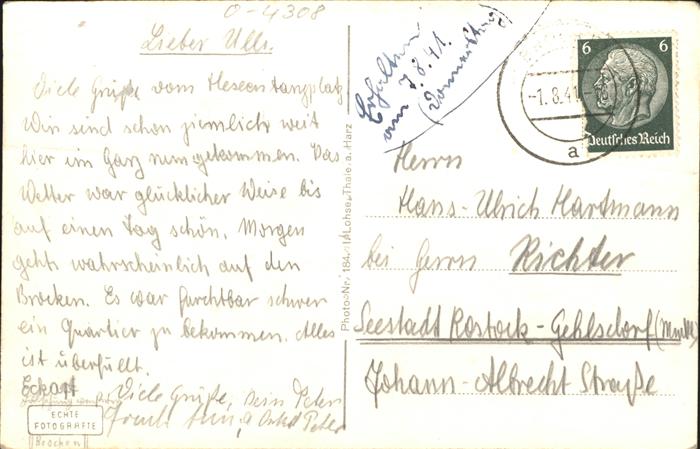 0-4308
Lieber Ulli.
Viele Grüße vom Hexentanzplatz
Wir sind schon ziemlich weit
hier im Harz rumgekommen. Das
Wetter war glücklicher Weise bis
auf einen Tag schön. Morgen
gehts wahrscheinlich auf den
Brocken. Es war furchtbar schwer
ein Quartier zu bekommen. Alles
ist überfüllt.
Eckart
Viele Grüße, Dein Peter
Peter
ECHTE
FOTOGRAFIE
(Brocken)
Photo Nr. 184 Lohse, Thale a. Harz
Erhalten
am 7.8.41.
(Donnerstag)
-1.8.41.-
a
6 6
Deutsches Reich
Herrn
Hans-Ulrich Hartmann
bei Herrn Richter
Seestadt Rostock-Gehlsdorf
Johann-Albrecht Straße